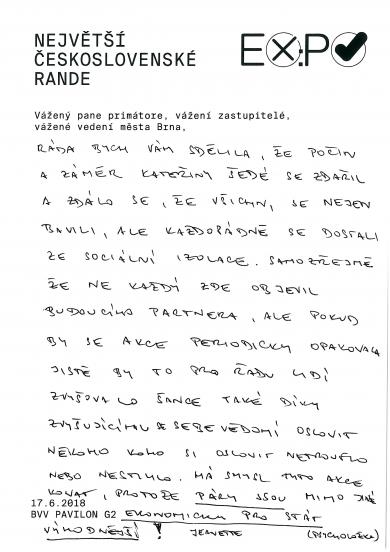 NEJVĚTŠÍ
ČESKOSLOVENSKÉ
RANDE
EXPO
Vážený pane primátore, vážení zastupitelé,
vážené vedení města Brna,
RÁDA BYCH VÁM SDĚLILA, ŽE POČIN
A ZÁMĚR KATEŘINY ŠEDÉ SE ZDAŘIL
A ZDÁLO SE, ŽE VŠICHNI, SE NEJEN
BAVILI, ALE KAŽDOPÁDNĚ SE DOSTALI
ZE SOCIÁLNÍ IZOLACE. SAMOZŘEJMĚ
ŽE NE KAŽDÝ ZDE OBJEVIL
BUDOUCÍHO PARTNERA, ALE POKUD
BY SE AKCE PERIODICKY OPAKOVALA
JISTĚ BY TO PRO ŘADU LIDÍ
ZVYŠOVALO ŠANCE TAKÉ DÍKY
ZVYŠUJÍCÍMU SE SEBEVĚDOMÍ OSLOVIT
NĚKOHO KOHO SI OSLOVIT NETROUFLO
NEBO NESTIHLO. MÁ SMYSL TYTO AKCE
KONAT, PROTOŽE PÁRY JSOU MIMO JINÉ
17.6.2018
BVV PAVILON G2 EKONOMICKY PRO STÁT
VÝHODNĚJŠÍ! JEANETTE (PSYCHOLOŽKA)